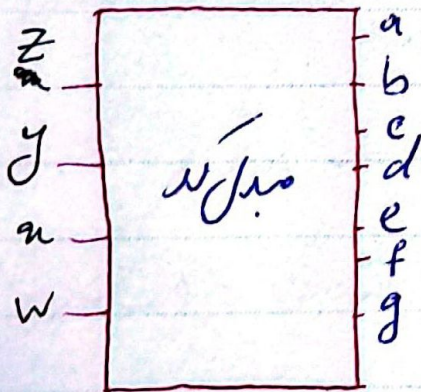 Z
y
x
w
مبدل کد
a
b
c
d
e
f
g